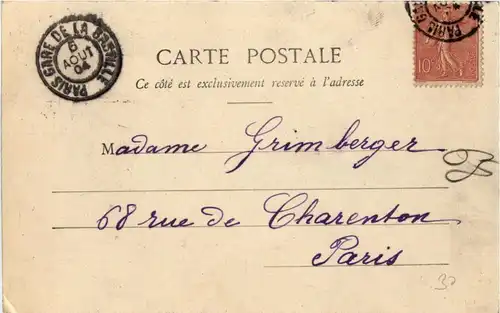 PARIS GARE DE LA BASTILLE
6
AOUT
04
PARIS GARE
10c
CARTE POSTALE
Ce côté est exclusivement reservé à l'adresse
Madame Grimberger
68 rue de Charenton
Paris